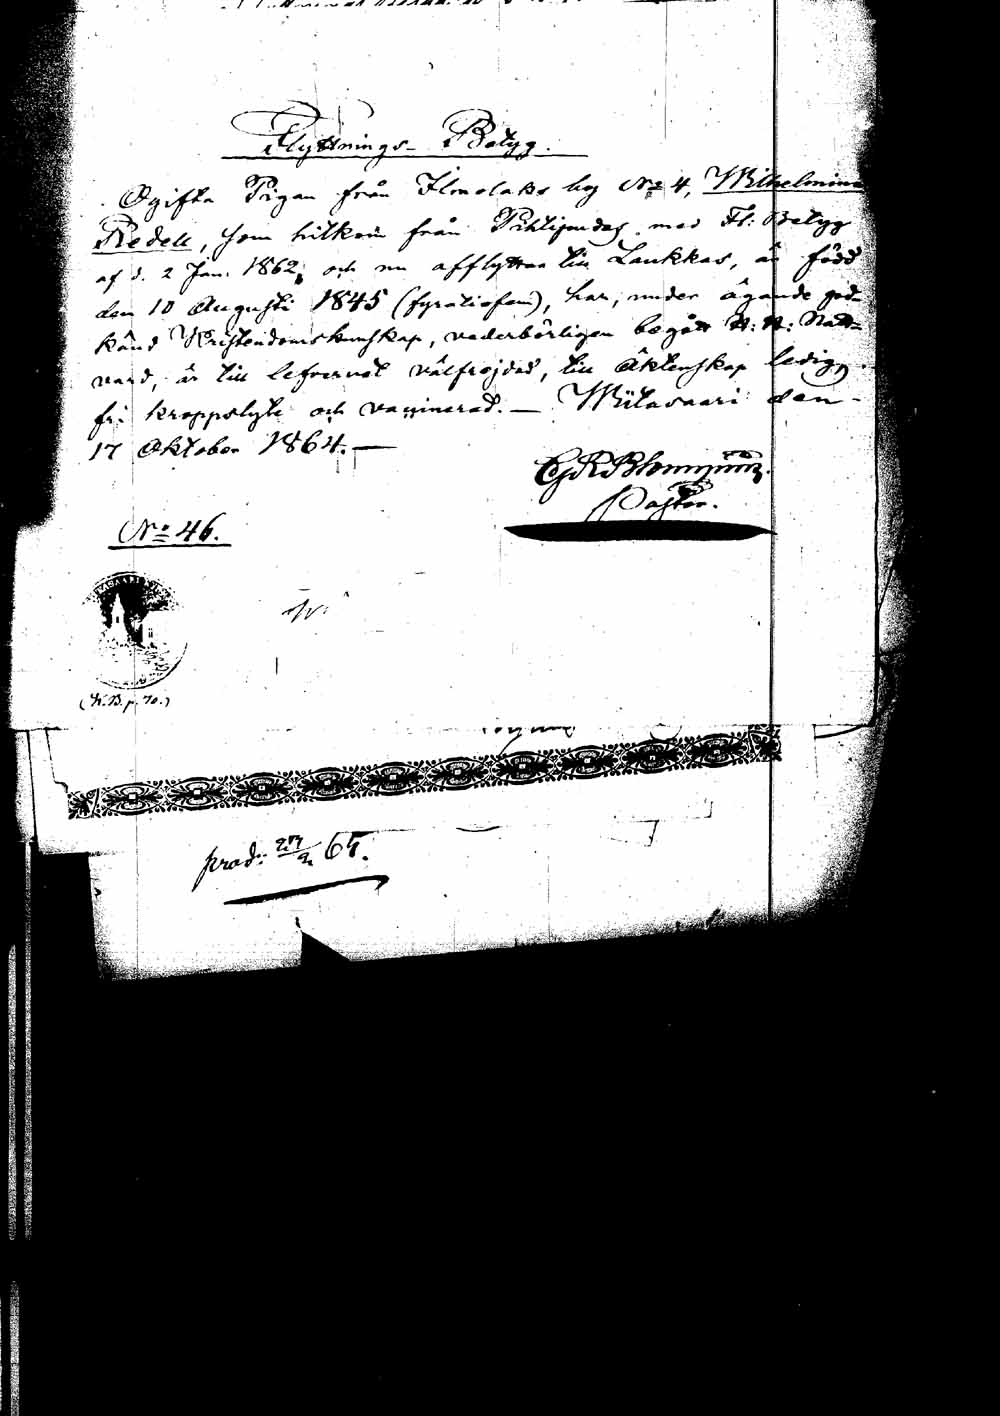 Flyttnings- Betyg.
Ogifta Pigan från Ilmolaks by No 4, Wilhelmina
Redell, som hitkom från Pihtipudas med Fl: Betyg
af d. 2 Jan. 1862, och nu afflyttar till Laukkas, är född
den 10 Augusti 1845 (fyratiofem), har, under ägande god-
känd Kristendomskunskap, vederbörligen begått H: H: Natt-
vard, är till lefvernet välfrejdad, till Äktenskap ledig,
fr: kroppslyte och vaccinerad. — Wiitasaari den
17 Oktober 1864. —
Pastor.
No 46.
(K.B. p. 70.)
prod: 27/2 65.